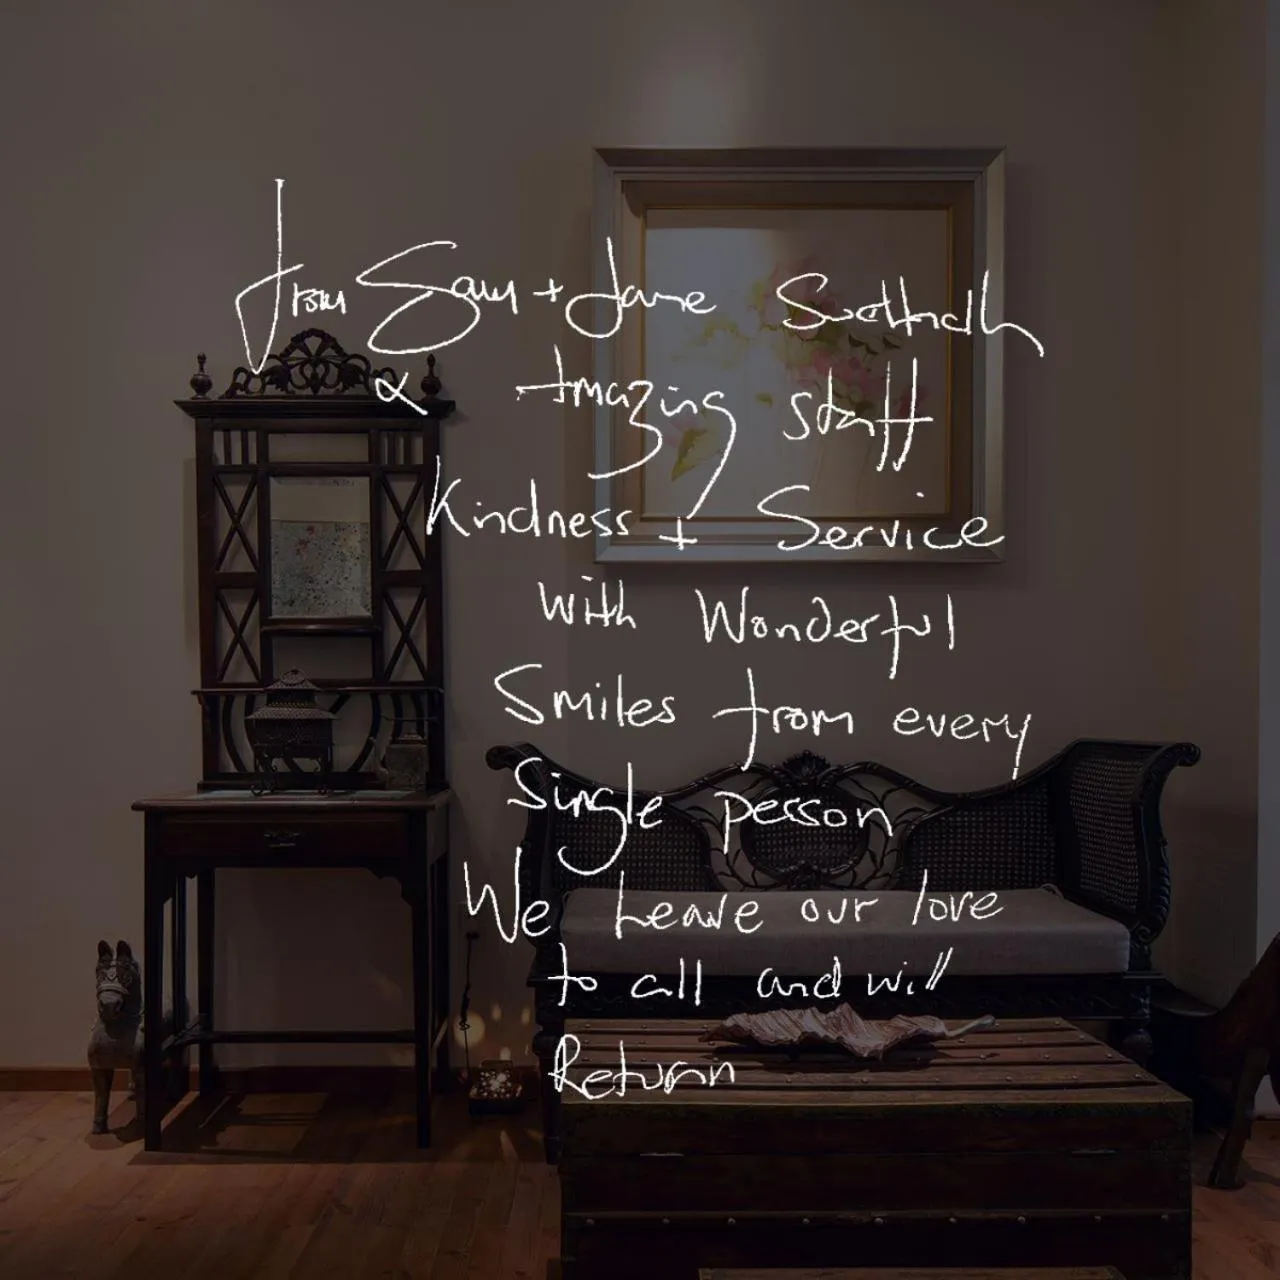 From Sam + Jane
& Amazing staff
Kindness + Service
with Wonderful
Smiles from every
Single person
We Leave our love
to all and will
Return